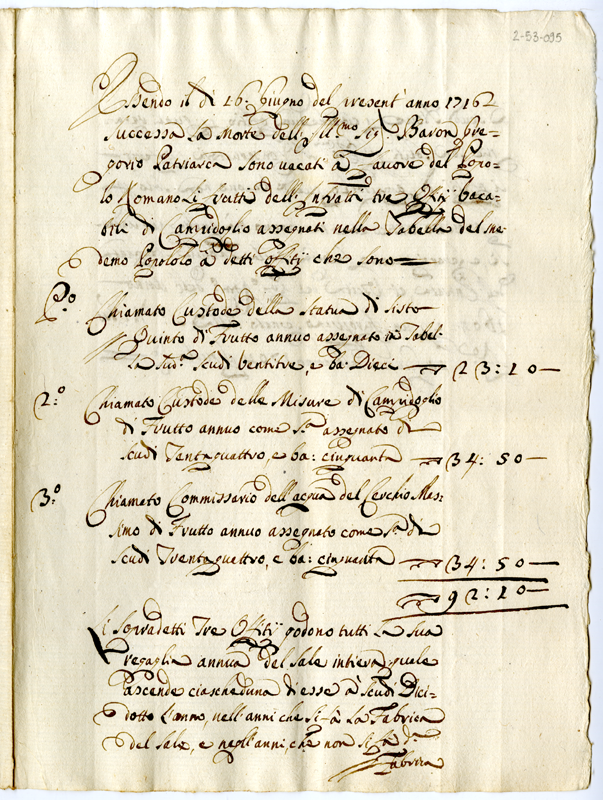 2-53-095
Essendo il dì 16: Giugno del present' anno 1716
successa la Morte dell' Ill:mo Sig: Baron Gre-
gorio Patriarca sono vacati à favore del Popo-
lo Romano li frutti delli tre Offitij vaca-
bili di Campidoglio assegnati nella Tabella del me-
demo Popololo à detti offitij che sono
P:o Chiamato Custode della Statua di Sisto
Quinto di Frutto annuo assegnato in Tabel-
la Sud:a Scudi ventitre, e ba: Dieci — 23:10 —
2:o Chiamato Custode delle Misure di Campidoglio
di Frutto annuo come s:a assegnato di
scudi Trentaquattro, e ba: cinquanta — 34:50 —
3:o Chiamato Commissario dell' acqua del Cerchio Mas-
simo di Frutto annuo assegnato come s:a di
scudi Trentaquattro, e ba: cinquanta — 34:50 —
92:10 —
Li sopradetti Tre Offitij godono tutti la sua
regaglia annua del sale intiera quale
ascende ciascheduna di esse à scudi Dici-
dotto l'anno, nell' anni che si fà la Fabrica
del sale, e negl' anni, che non si fà d:a
Fabrica